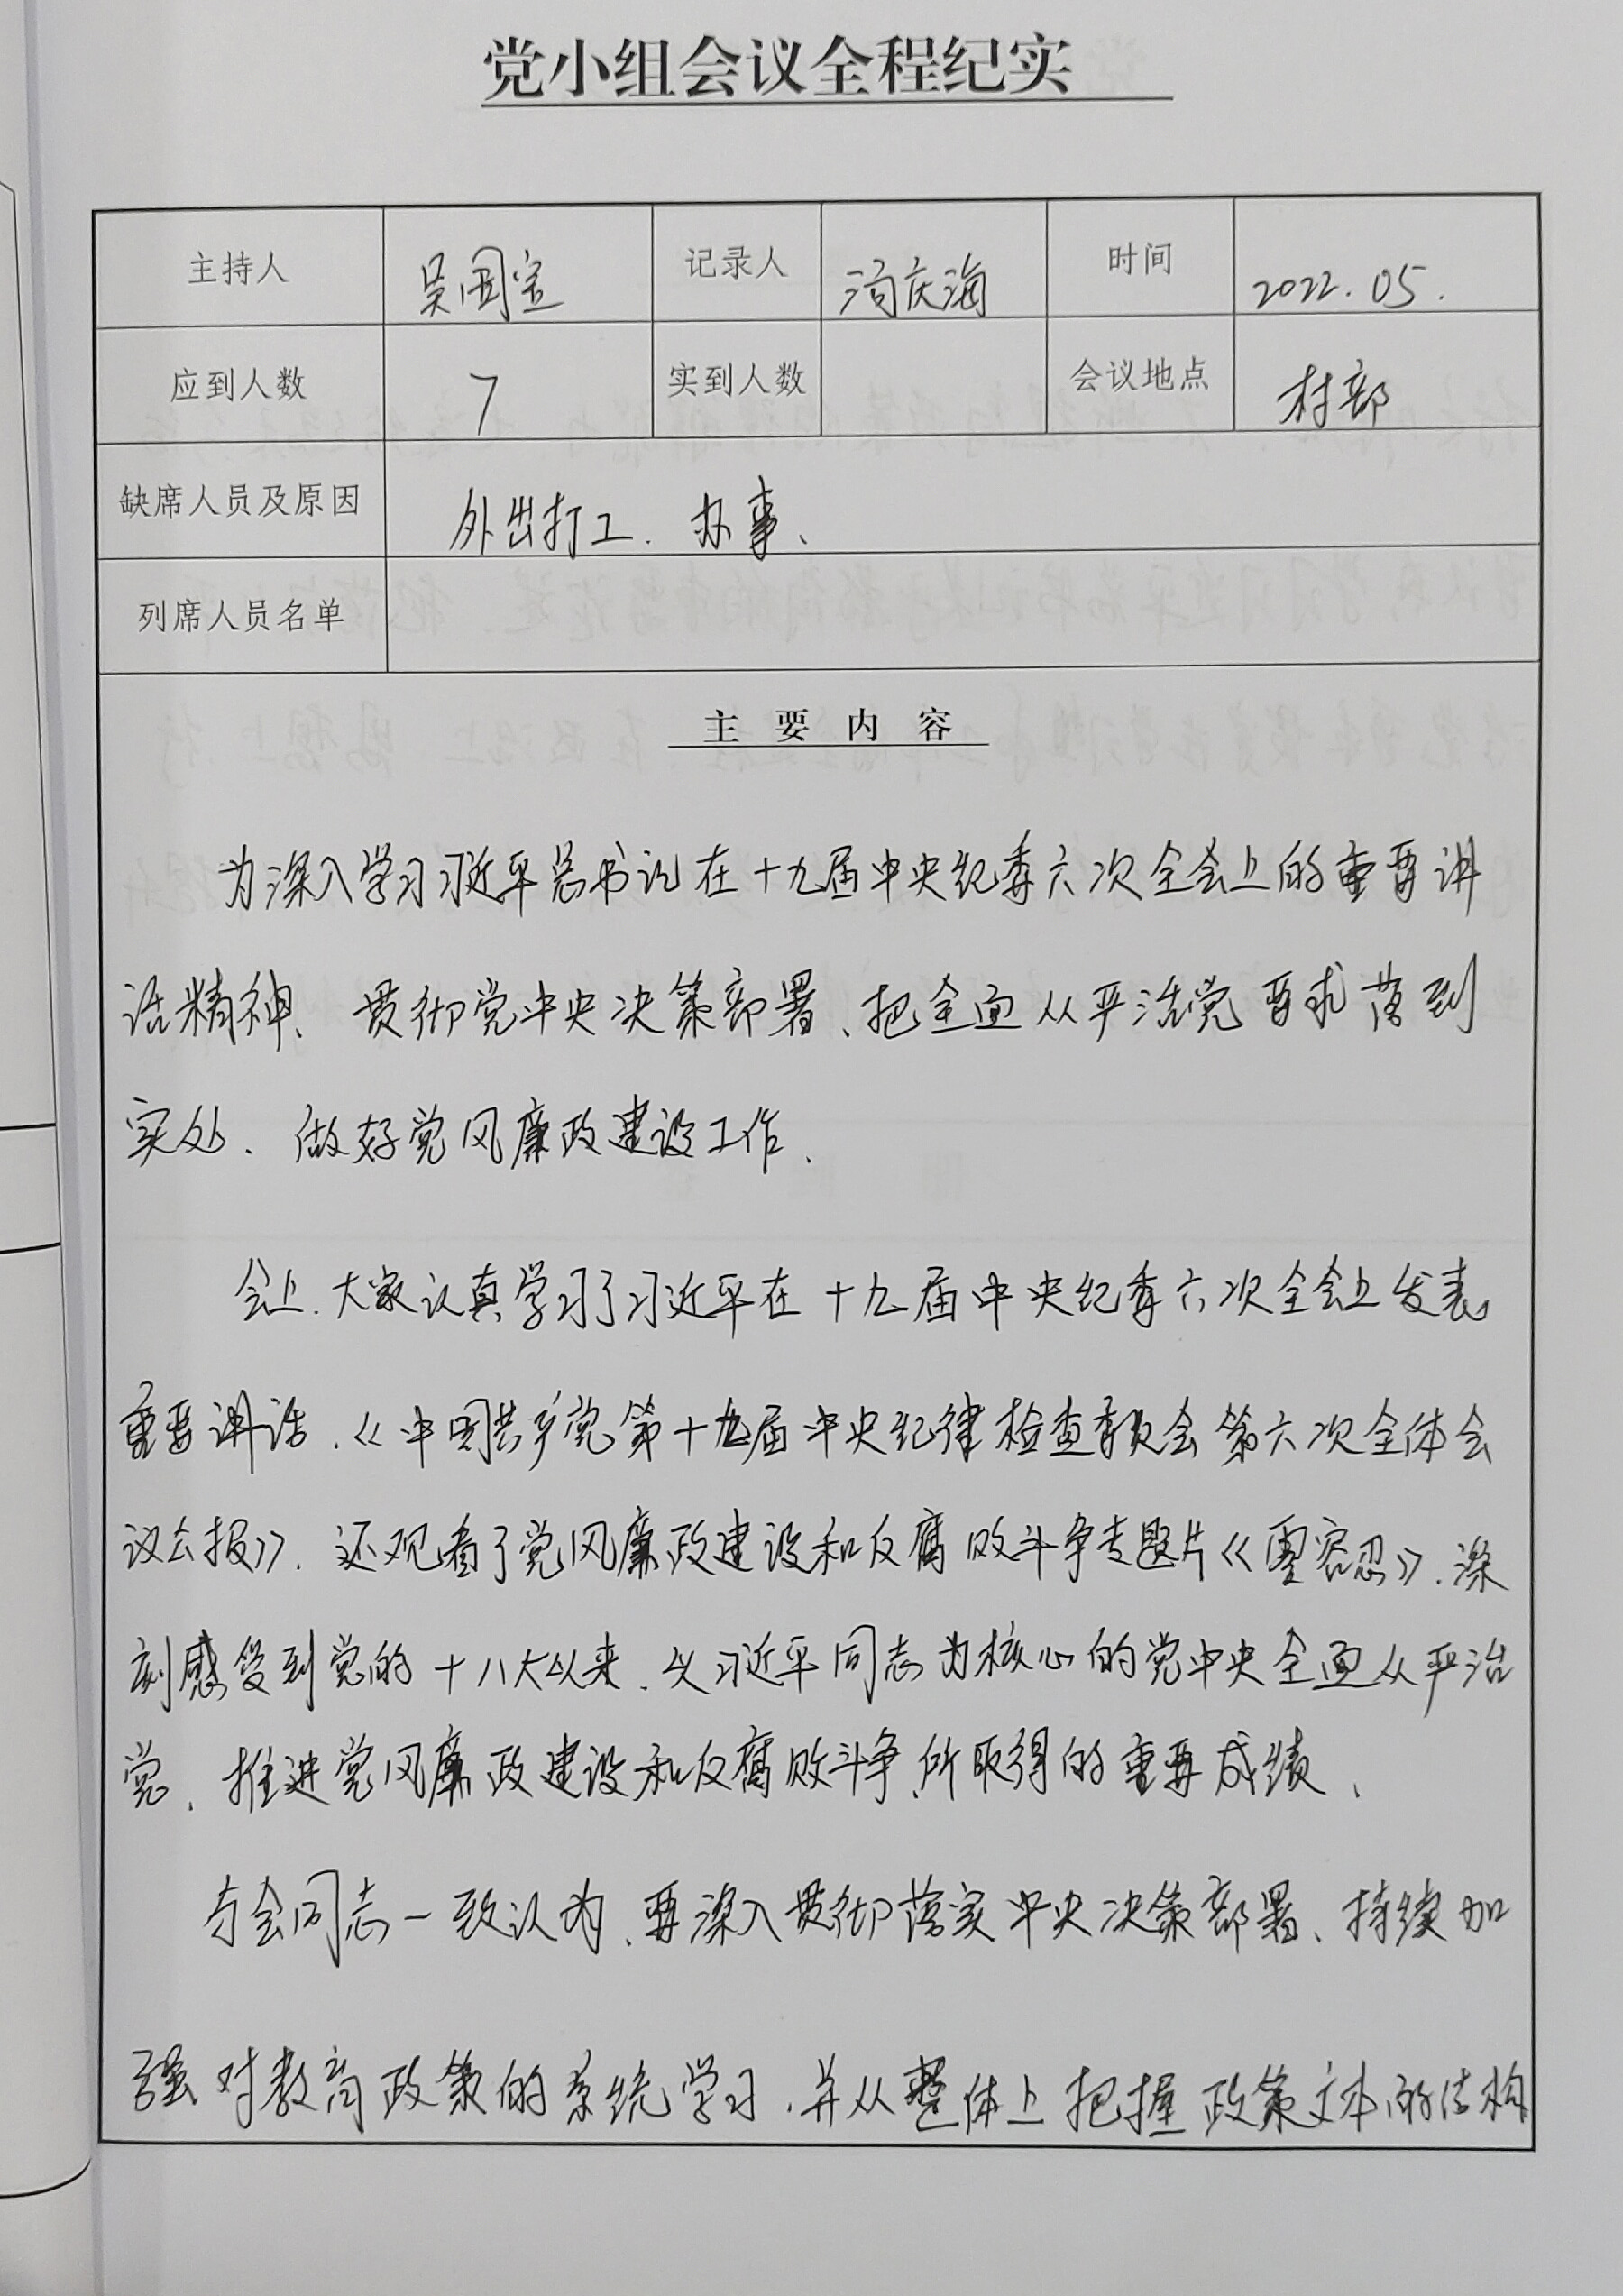 党小组会议全程纪实
主持人 吴国宝 记录人 庆海 时间 2022.05.
应到人数 7 实到人数 会议地点 村部
缺席人员及原因 外出打工.办事、
列席人员名单
主要内容
为深入学习习近平总书记在十九届中央纪委六次全会上的重要讲
话精神、贯彻党中央决策部署、把全面从严治党要求落到
实处、做好党风廉政建设工作.
会上.大家认真学习了习近平在十九届中央纪委六次全会上发表
重要讲话.《中国共产党第十九届中央纪律检查委员会第六次全体会
议公报》.还观看了党风廉政建设和反腐败斗争专题片《零容忍》.深
刻感受到党的十八大以来、以习近平同志为核心的党中央全面从严治
党、推进党风廉政建设和反腐败斗争、所取得的重要成绩、
与会同志一致认为、要深入贯彻落实中央决策部署、持续加
强对教育政策的系统学习.并从整体上把握政策文本的结构